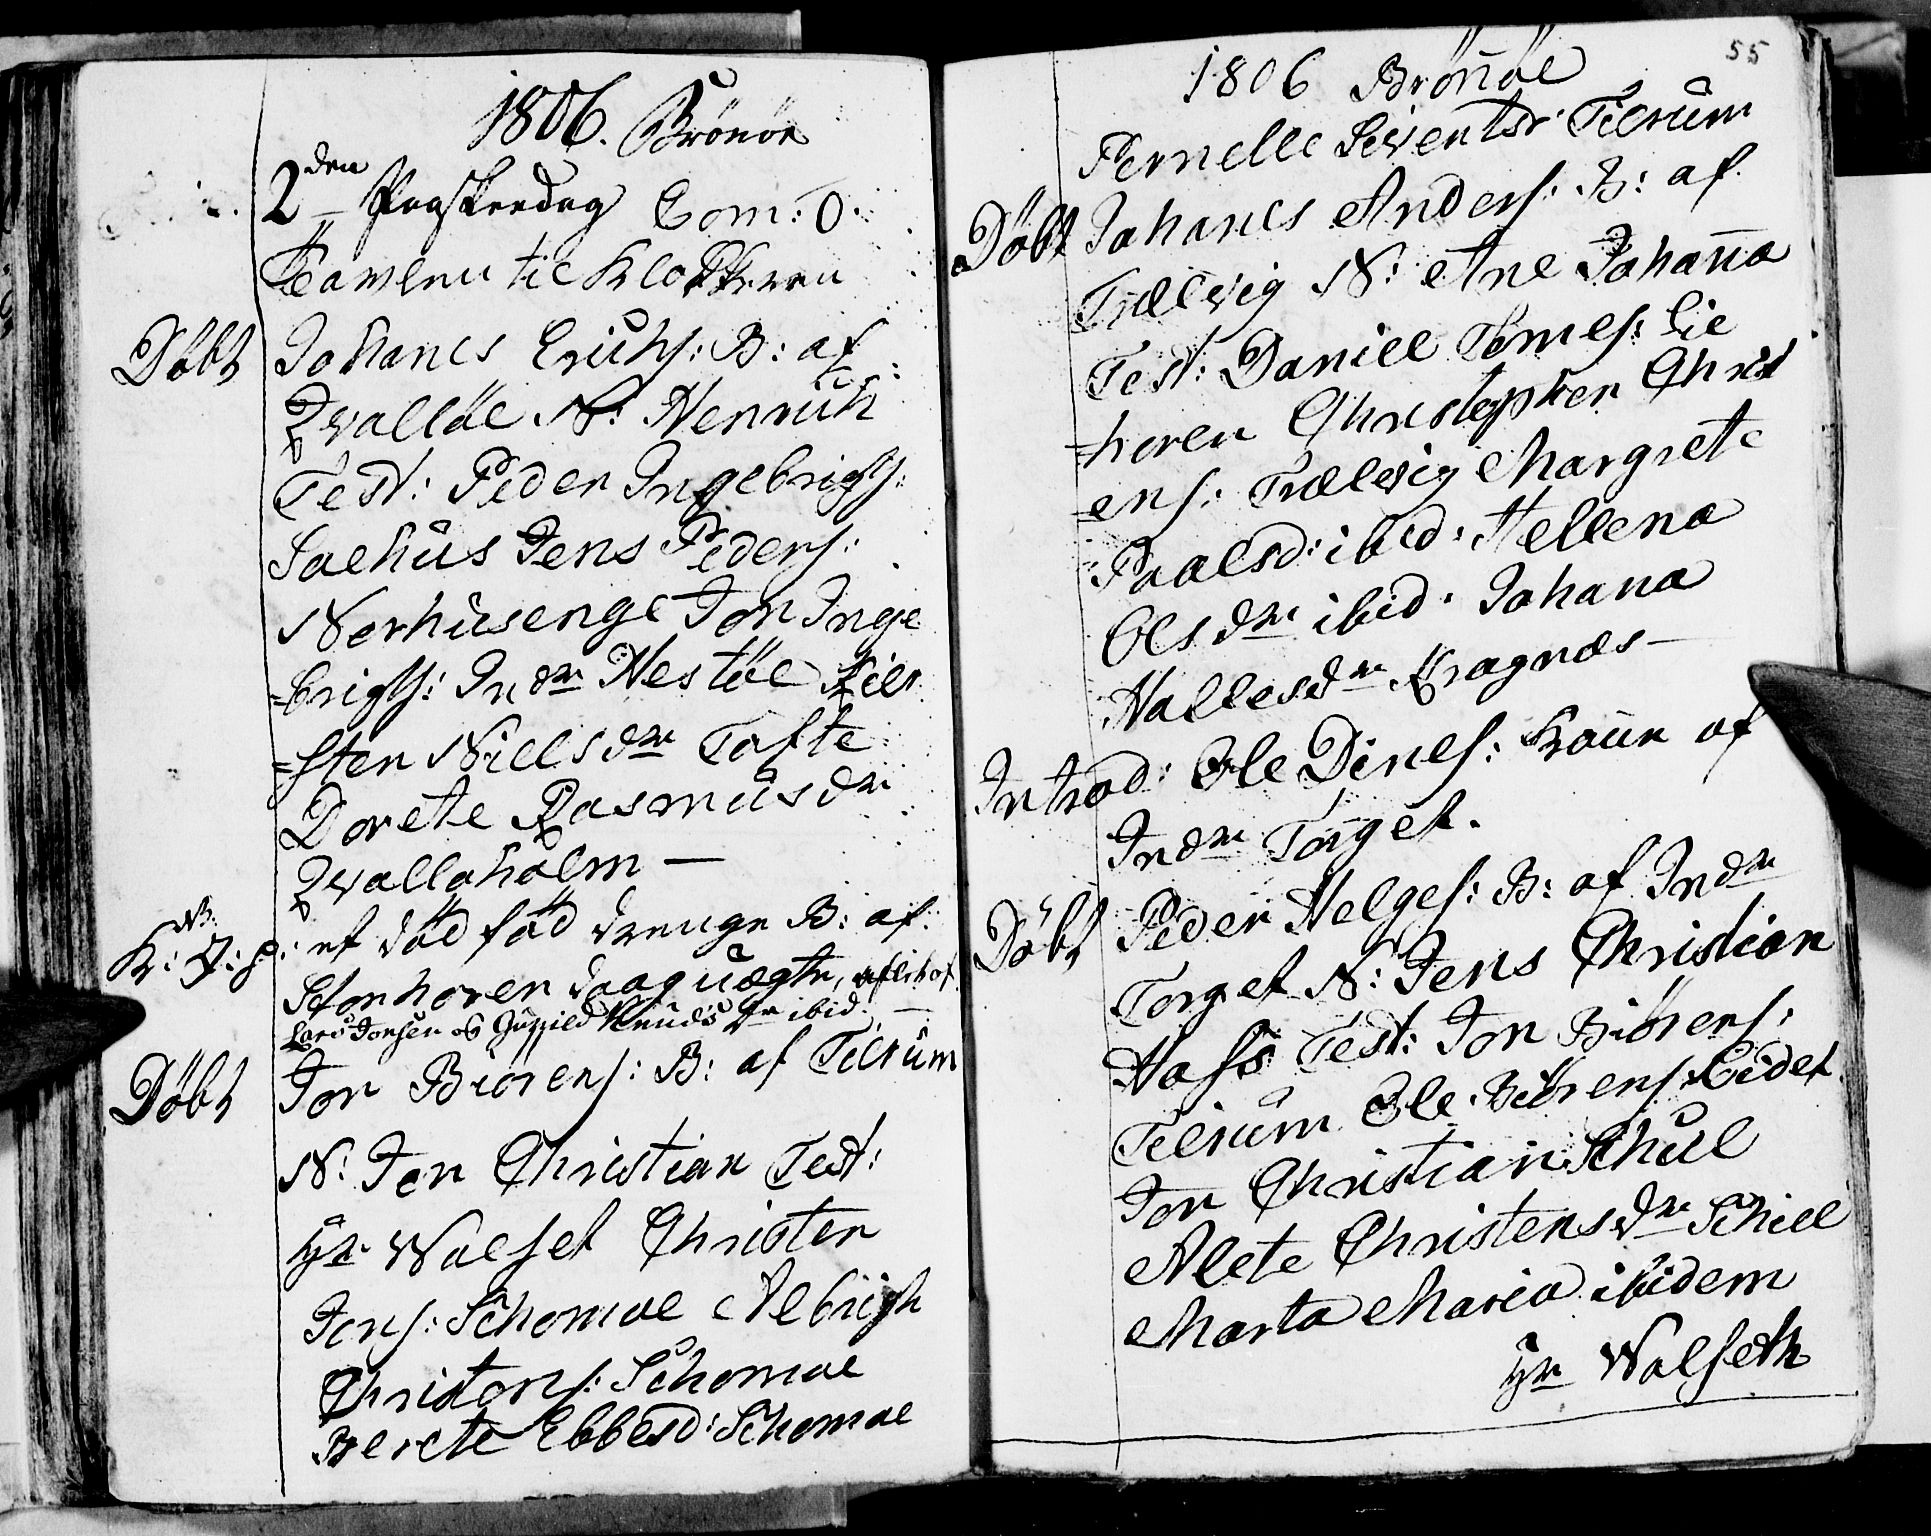 1806. Brönöe
2den Paaskendag Com: 0.
Tavlen til Klokkeren
Döbt Johanes Erichs: B: af
Qvalöe N: Henrich
Test: Peder Ingebrigts:
Salhus Jens Peders:
Norhusenge Jon Inge
=brigts: Indr Hestöe Kir
=sten Nillsdr Tofte
Dorete Rasmusdr
Qvalloholm —
NB.
K: J: P: et död föd drenge B: af
Storhoren
Lars Jonsen og Knudsdr ibid. —
Döbt Jon Biörens: B: af Tilrum
N: Jon Christian Test:
Hr Walset Christen
Jens: Schomoe Albrigt
Christens: Schomoe
Berete Ebbesd: Schomoe
55
1806 Brönöe
Pernelle Siventsdr Tilrum
Döbt Johanes Anders: B: af
Trælvig N: Ane Johana
Test: Daniel Tömes: lie
=horen Christopher Christ
=ens: Trælvig Margrete
Paalsd: ibid: Hellena
Olsdr ibid. Johana
Hallesdr Kragnæs —
Introd: Ole Dines: Kone af
Indr Torget.
Döbt Peder Helges: B: af Indr
Torget N: Jens Christian
Hass Test: Jon Biörens:
Tilrum Ole Biörens: Eidet
Jon Christian Schiel
Alete Christensdr Schiel
Marta Maria ibidem
Hr Walseth